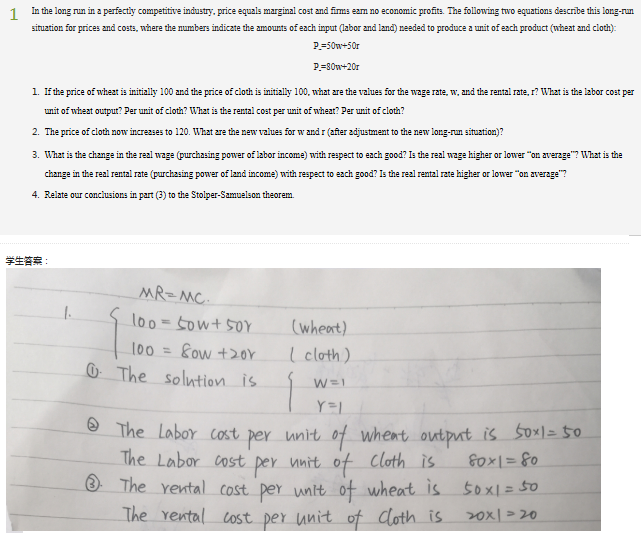 1 In the long run in a perfectly competitive industry, price equals marginal cost and firms earn no economic profits. The following two equations describe this long-run
situation for prices and costs, where the numbers indicate the amounts of each input (labor and land) needed to produce a unit of each product (wheat and cloth):
P_=50w+50r
P_=80w+20r
1. If the price of wheat is initially 100 and the price of cloth is initially 100, what are the values for the wage rate, w, and the rental rate, r? What is the labor cost per
unit of wheat output? Per unit of cloth? What is the rental cost per unit of wheat? Per unit of cloth?
2. The price of cloth now increases to 120. What are the new values for w and r (after adjustment to the new long-run situation)?
3. What is the change in the real wage (purchasing power of labor income) with respect to each good? Is the real wage higher or lower "on average"? What is the
change in the real rental rate (purchasing power of land income) with respect to each good? Is the real rental rate higher or lower "on average"?
4. Relate our conclusions in part (3) to the Stolper-Samuelson theorem.
学生答案：
MR=MC.
1. { 100 = 50w + 50r (wheat)
100 = 80w + 20r (cloth)
①. The solution is { w=1
r=1
② The Labor cost per unit of wheat output is 50×1=50
The Labor cost per unit of cloth is 80×1=80
③. The rental cost per unit of wheat is 50×1=50
The rental cost per unit of cloth is 20×1=20